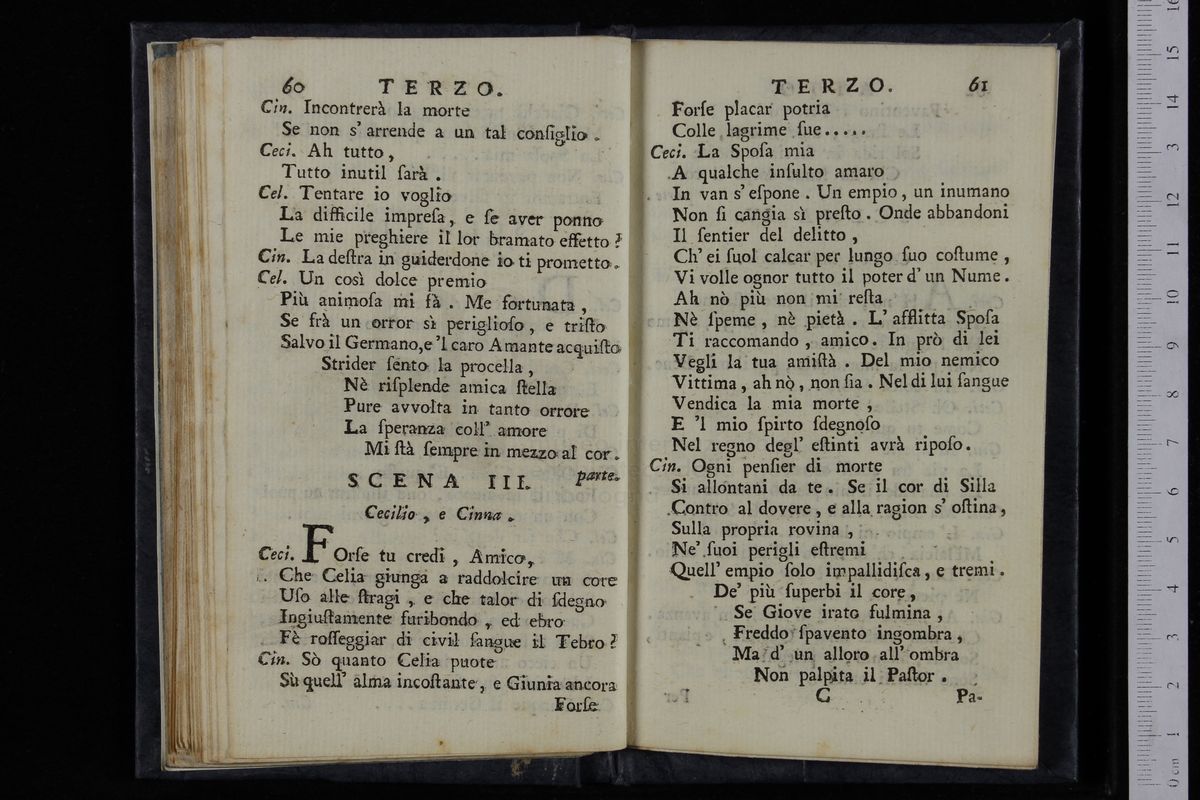 60 TERZO.
Cin. Incontrerà la morte
Se non s' arrende a un tal conſiglio.
Ceci. Ah tutto,
Tutto inutil ſarà.
Cel. Tentare io voglio
La difficile impreſa, e ſe aver ponno
Le mie preghiere il lor bramato effetto?
Cin. La deſtra in guiderdone io ti prometto.
Cel. Un così dolce premio
Più animoſa mi fà. Me fortunata,
Se frà un orror sì periglioſo, e triſto
Salvo il Germano, e 'l caro Amante acquiſto
Strider ſento la procella,
Nè riſplende amica ſtella
Pure avvolta in tanto orrore
La ſperanza coll' amore
Mi ſtà ſempre in mezzo al cor.
parte.
SCENA III.
Cecilio, e Cinna.
Ceci. FOrſe tu credi, Amico,
Che Celia giunga a raddolcire un core
Uſo alle ſtragi, e che talor di ſdegno
Ingiuſtamente furibondo, ed ebro
Fè roſſeggiar di civil ſangue il Tebro?
Cin. Sò quanto Celia puote
Sù quell' alma incoſtante, e Giunia ancora
Forſe
TERZO. 61
Forſe placar potria
Colle lagrime ſue.....
Ceci. La Spoſa mia
A qualche inſulto amaro
In van s' eſpone. Un empio, un inumano
Non ſi cangia sì preſto. Onde abbandoni
Il ſentier del delitto,
Ch' ei ſuol calcar per lungo ſuo coſtume,
Vi volle ognor tutto il poter d' un Nume.
Ah nò più non mi reſta
Nè ſpeme, nè pietà. L' afflitta Spoſa
Ti raccomando, amico. In prò di lei
Vegli la tua amiſtà. Del mio nemico
Vittima, ah nò, non ſia. Nel di lui ſangue
Vendica la mia morte,
E 'l mio ſpirto ſdegnoſo
Nel regno degl' eſtinti avrà ripoſo.
Cin. Ogni penſier di morte
Si allontani da te. Se il cor di Silla
Contro al dovere, e alla ragion s' oſtina,
Sulla propria rovina,
Ne' ſuoi perigli eſtremi
Quell' empio ſolo impallidiſca, e tremi.
De' più ſuperbi il core,
Se Giove irato fulmina,
Freddo ſpavento ingombra,
Ma d' un alloro all' ombra
Non palpita il Paſtor.
C Pa-
0 cm 1 2 3 4 5 6 7 8 9 10 11 12 3 14 15 16